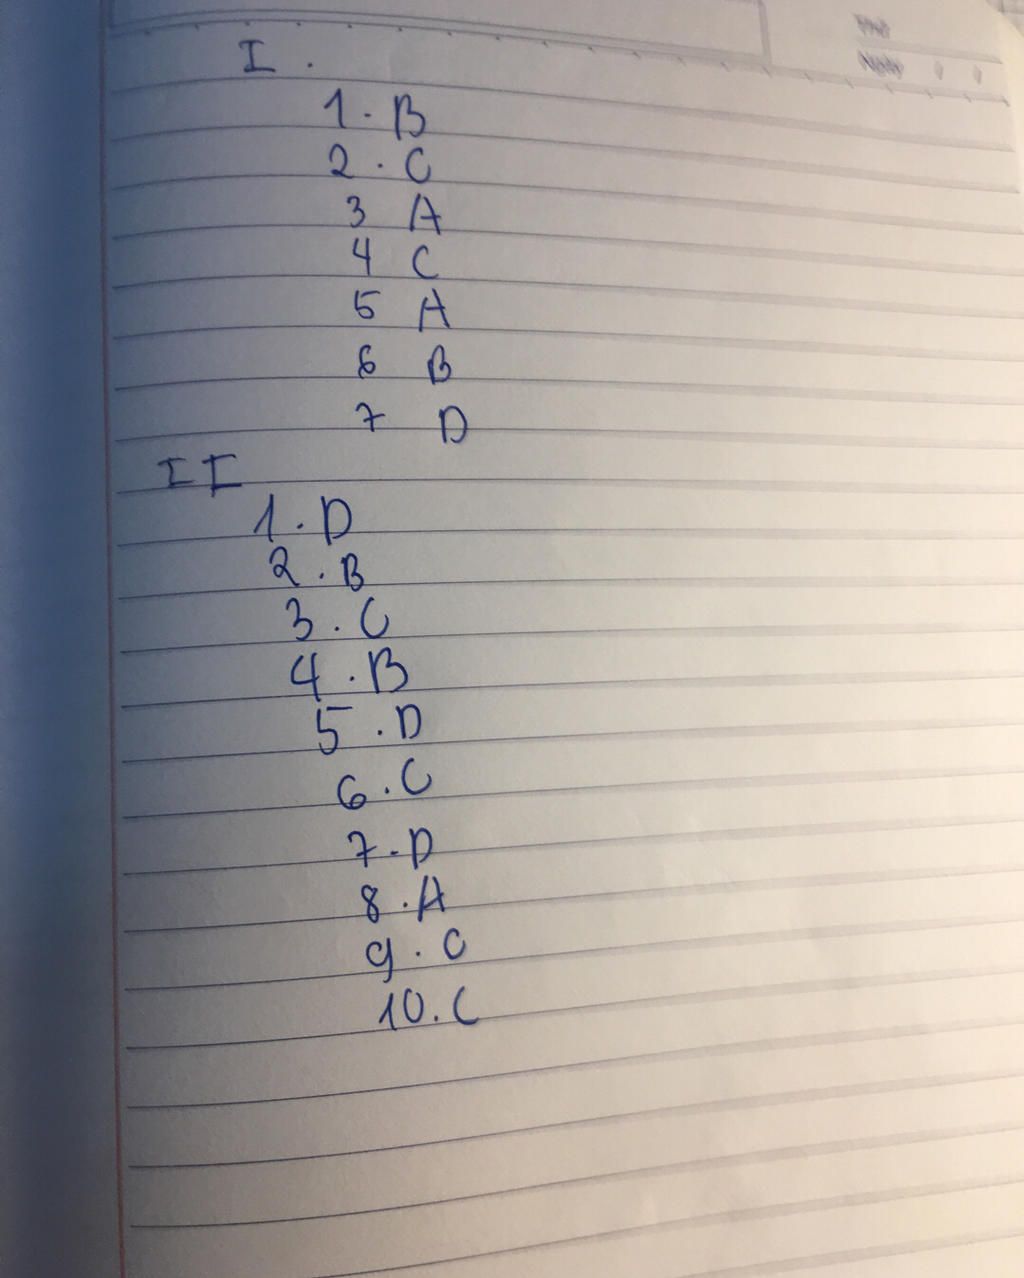 I.
1. B
2. C
3 A
4 C
5 A
6 B
7 D
II
1. D
2. B
3. C
4. B
5. D
6. C
7. D
8. A
9. C
10. C